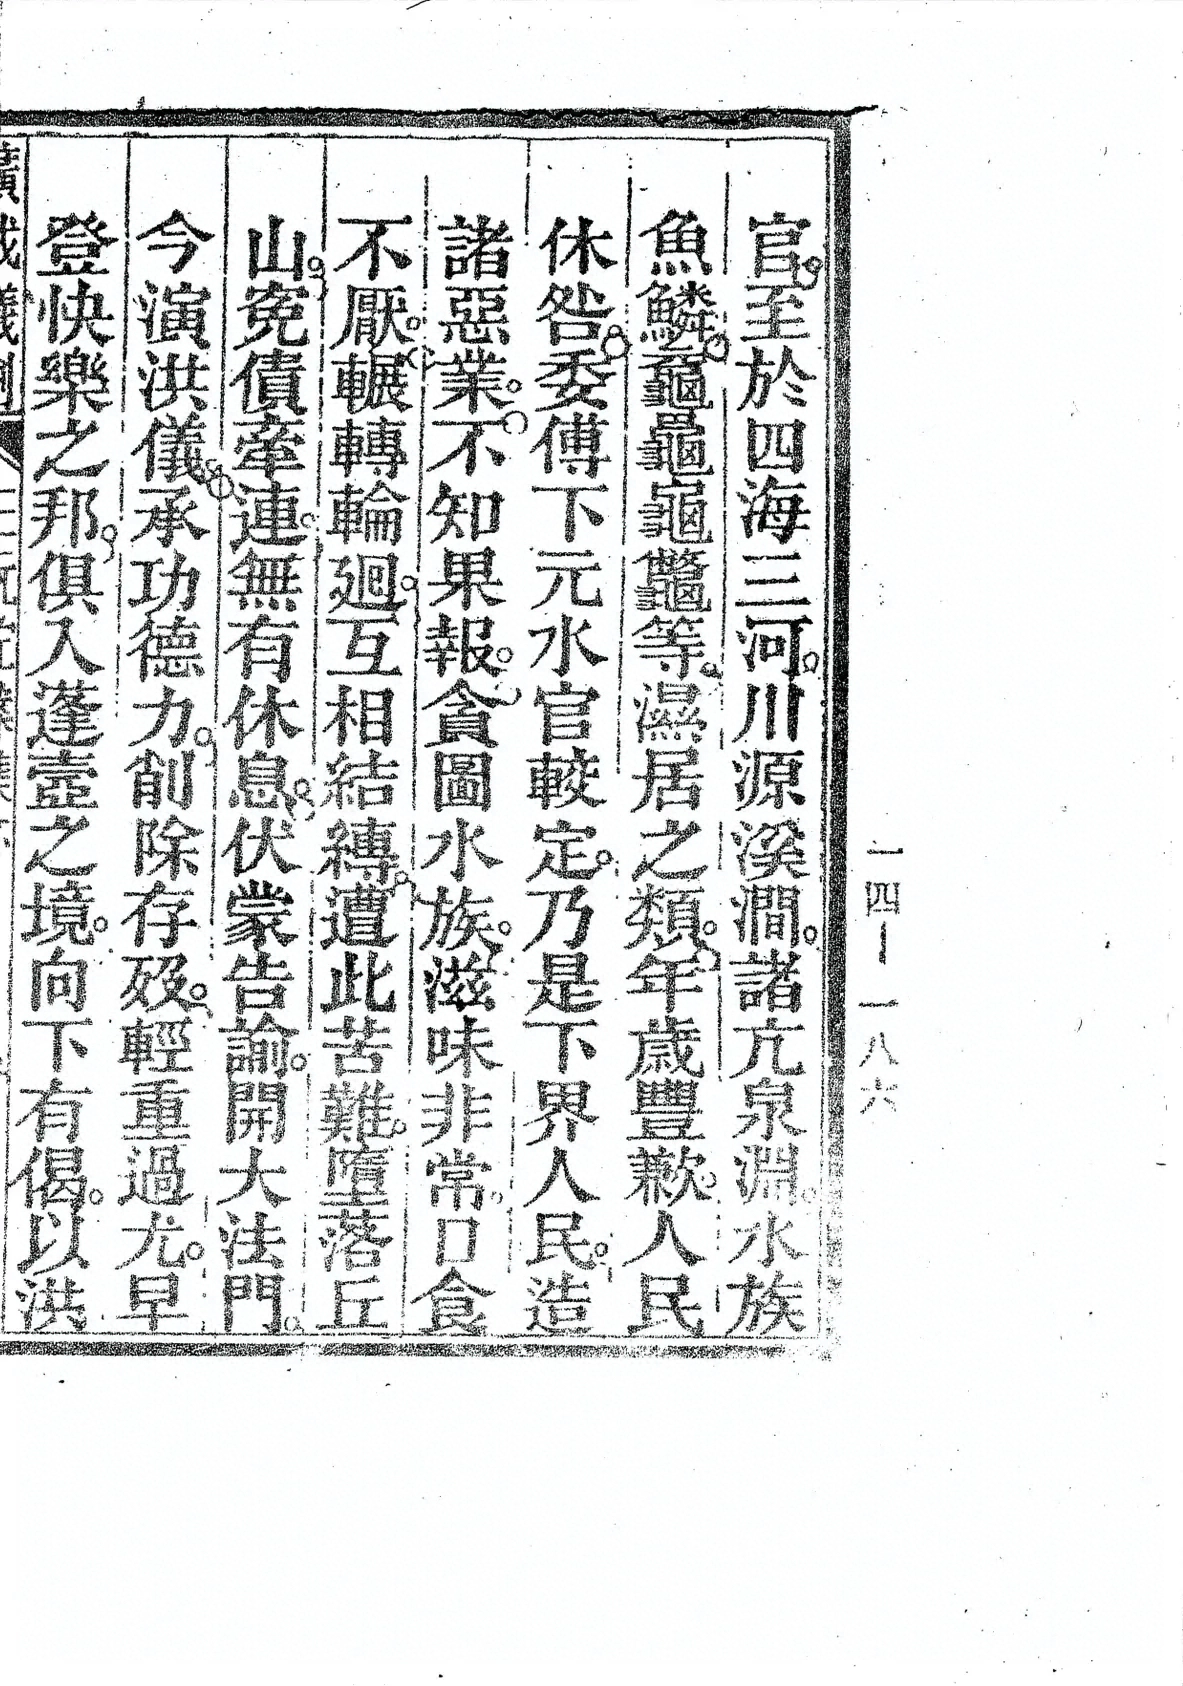 官。至於四海三河。川源溪澗。諸亢泉淵。水族
魚鱗。黿鼉龜鼈等。濕居之類。年歲豐歉。人民
休咎。委傅下元水官較定。乃是下界人民。造
諸惡業。不知果報。貪圖水族。滋味非常。口食
不厭。輾轉輪廻。互相結縳。遭此苦難。墮落丘
山。寃債牽連。無有休息。伏蒙告諭。開大法門。
今演洪儀。承功德力。削除存歿。輕重過尤。早
登快樂之邦。俱入蓬壼之境。向下有偈。以洪
一四—一八六